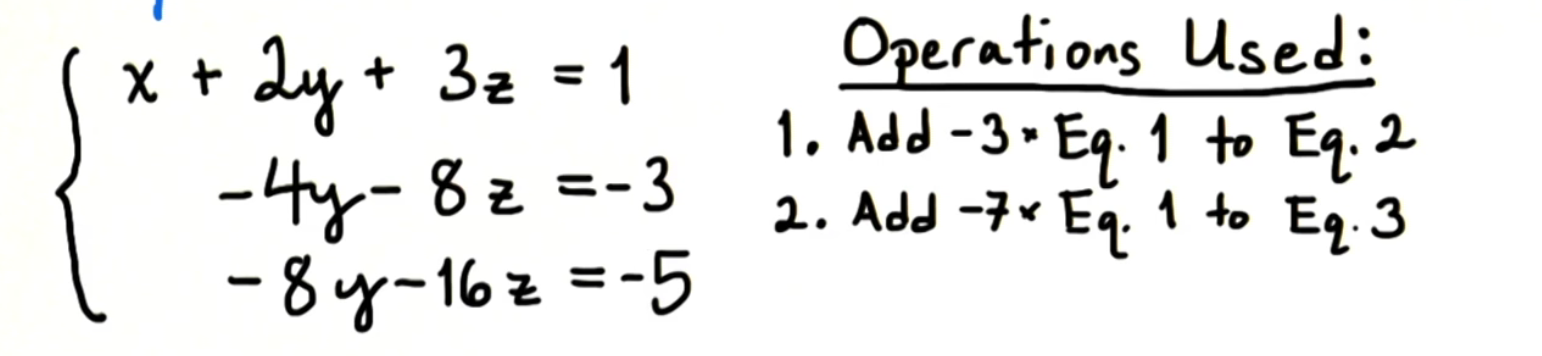 x + 2y + 3z = 1
-4y - 8z = -3
-8y - 16z = -5
Operations Used:
1. Add -3 * Eq. 1 to Eq. 2
2. Add -7 * Eq. 1 to Eq. 3